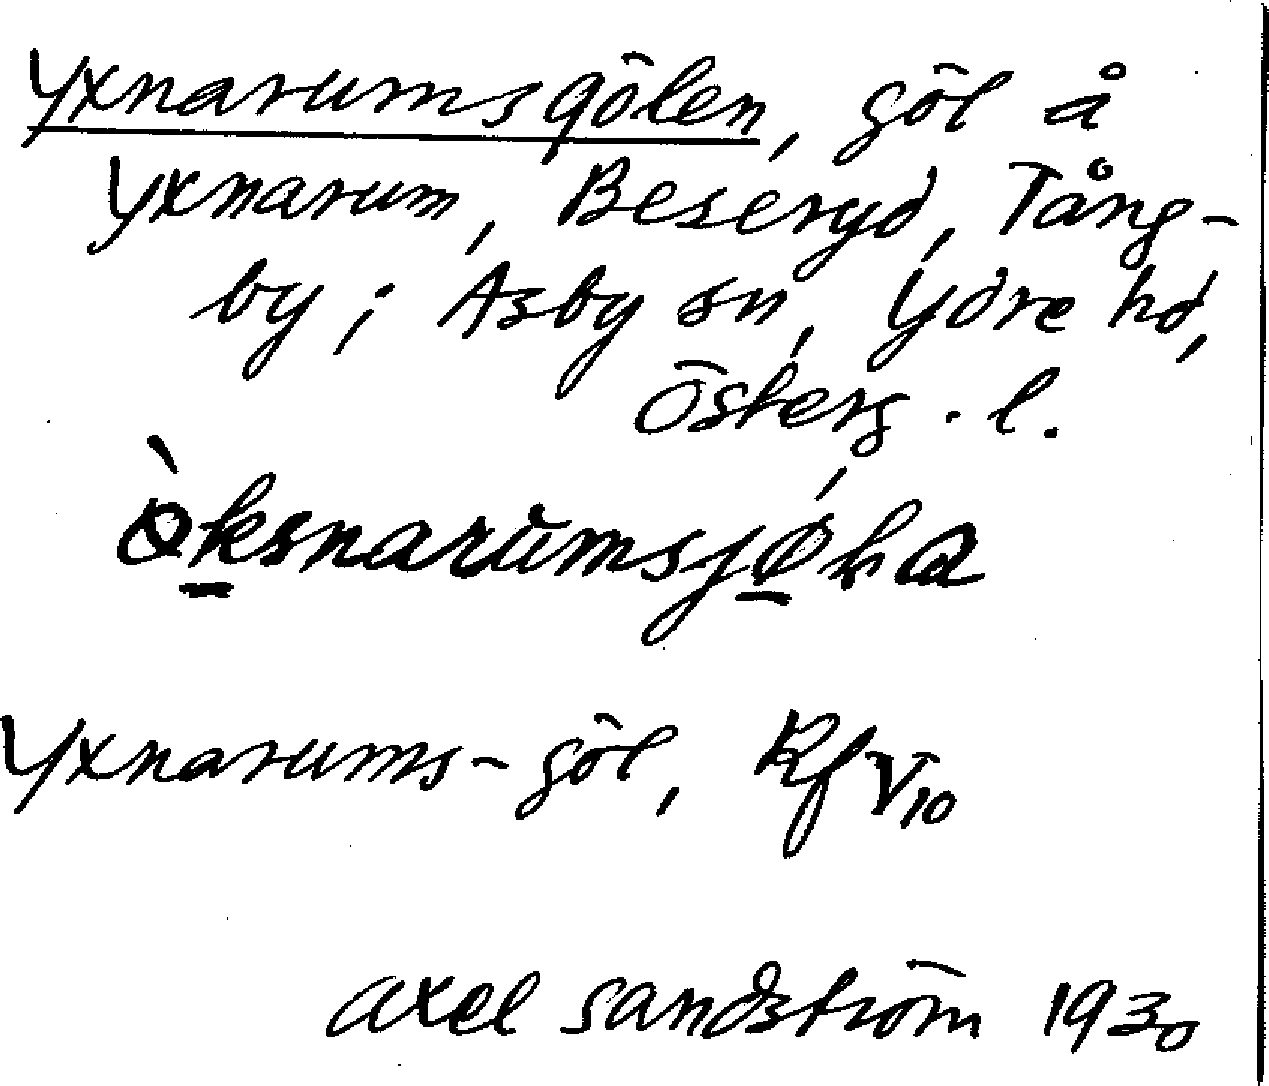 Yxnarumsgölen, göl å
Yxnarum, Beseryd, Tång-
by; Asby sn, Ydre hd,
Österg. l.
Yxnarums-göl, Rf V10
Axel Sandström 1930